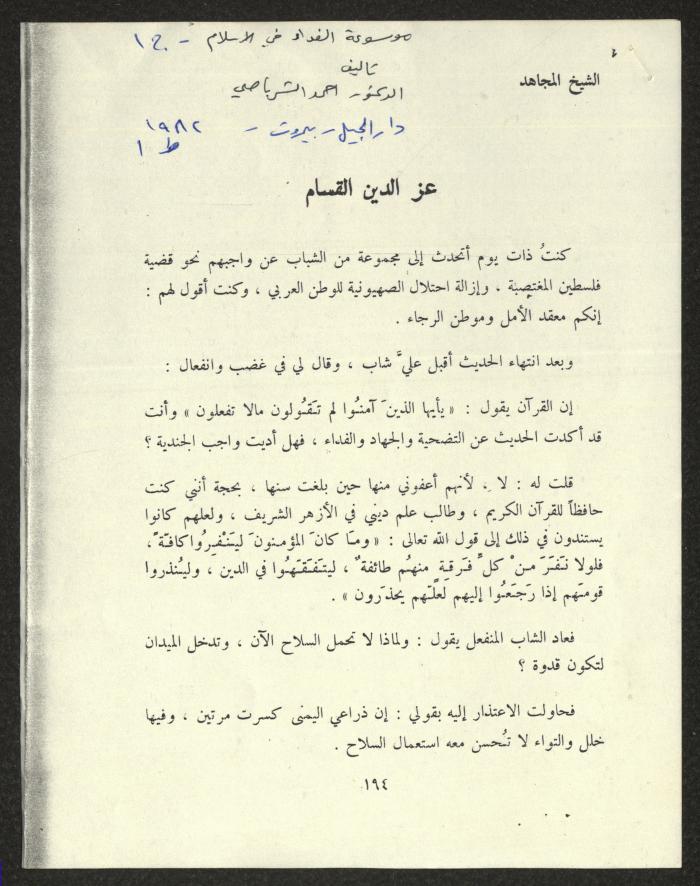 موسوعة الفداء في الاسلام - ج ١
تاليف
الدكتور احمد الشرباصي
دار الجيل - بيروت - ١٩٨٢
ط ١
الشيخ المجاهد
عز الدين القسام
كنتُ ذات يوم أتحدث إلى مجموعة من الشباب عن واجبهم نحو قضية
فلسطين المغتصبة ، وإزالة احتلال الصهيونية للوطن العربي ، وكنت أقول لهم :
إنكم معقد الأمل وموطن الرجاء .
وبعد انتهاء الحديث أقبل عليَّ شاب ، وقال لي في غضب وانفعال :
إن القرآن يقول : « يأيها الذينَ آمنُوا لم تَقُولون مالا تفعلون » وأنت
قد أكدت الحديث عن التضحية والجهاد والفداء ، فهل أديت واجب الجندية ؟
قلت له : لا ، لأنهم أعفوني منها حين بلغت سنها ، بحجة أنني كنت
حافظاً للقرآن الكريم ، وطالب علم ديني في الأزهر الشريف ، ولعلهم كانوا
يستندون في ذلك إلى قول الله تعالى : « ومَا كانَ المؤمنونَ ليَنْفِرُوا كافةً ،
فلولا نَفَرَ منْ كلِّ فرقةٍ منهُم طائفةٌ ، ليتَفَقَّهُوا في الدين ، وليُنذروا
قومَهم إذا رَجَعُوا إليهم لعلَّهم يحذَرون » .
فعاد الشاب المنفعل يقول : ولماذا لا تحمل السلاح الآن ، وتدخل الميدان
لتكون قدوة ؟
فحاولت الاعتذار إليه بقولي : إن ذراعي اليمنى كسرت مرتين ، وفيها
خلل والتواء لا تُحسن معه استعمال السلاح .
١٩٤